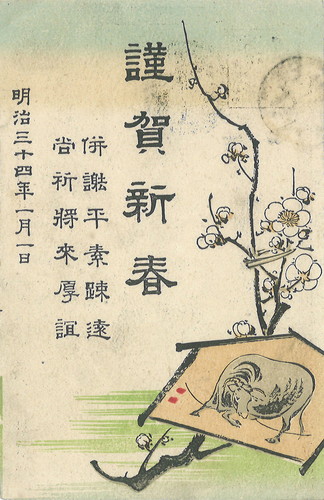 謹賀新春
併謝平素踈遠
尚祈將來厚誼
明治三十四年一月一日